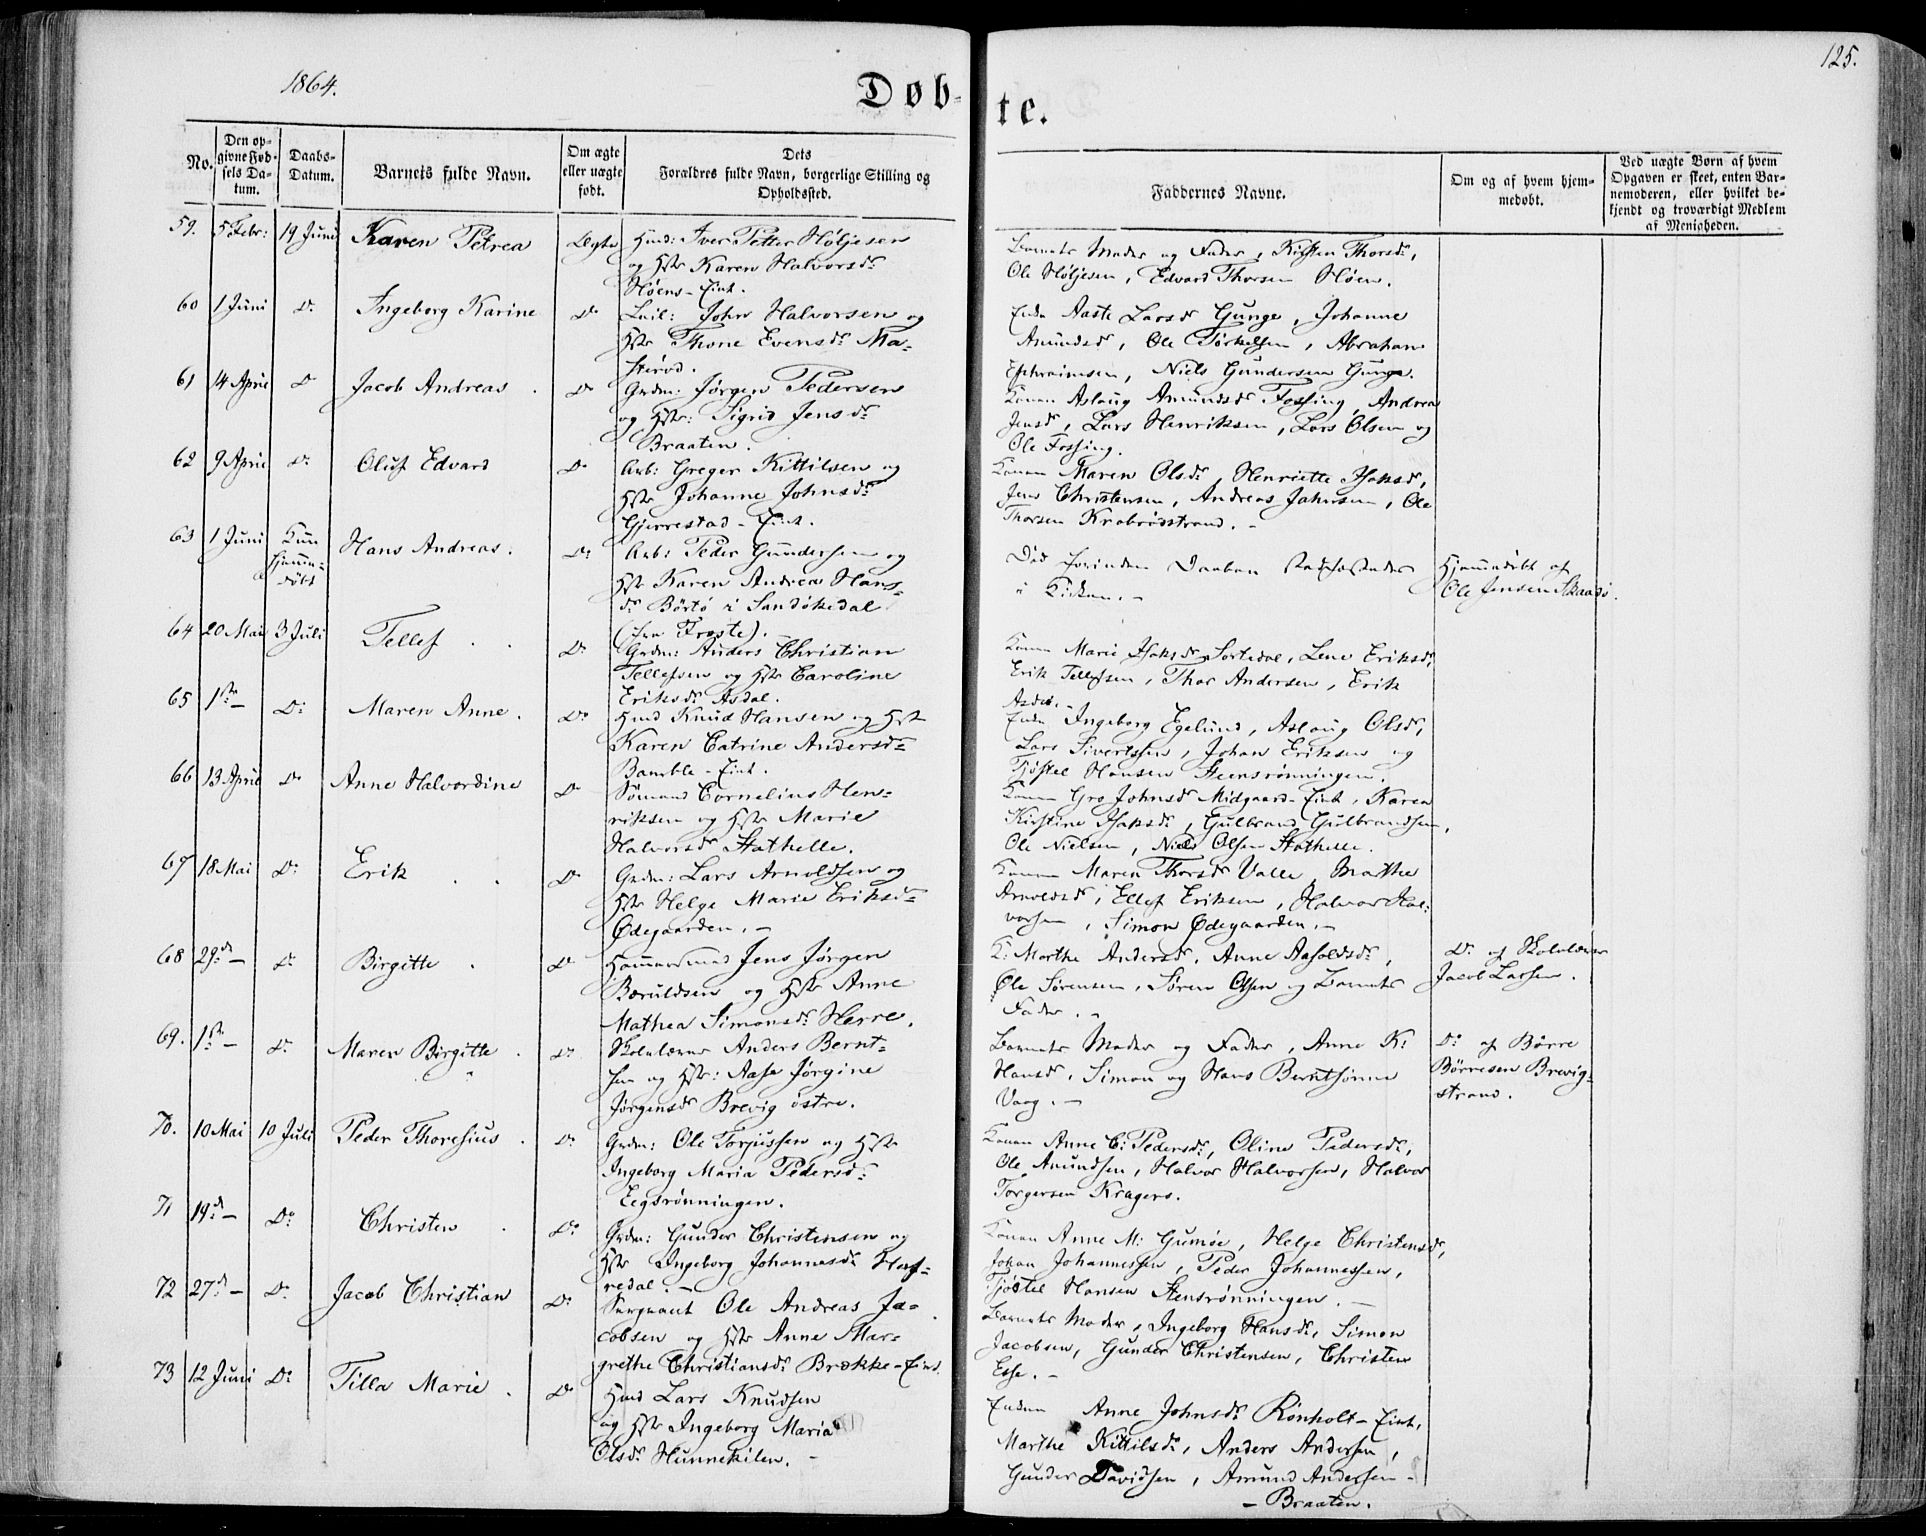 1864.
Døb-
te.
125.
No.
Den op-
givne Fød-
sels Da-
tum.
Daabs-
Datum.
Barnets fulde Navn.
Om ægte
eller uægte
født.
Dets
Forældres fulde Navn, borgerlige Stilling og
Opholdssted.
Faddernes Navne.
Om og af hvem hjem-
medøbt.
Ved uægte Børn af hvem
Opgaven er skeet, enten Bar-
nemoderen, eller hvilket be-
kjendt og troværdigt Medlem
af Menigheden.
59. 5 Febr: 19 Juni Karen Petrea Ægte Huusm: Iver Petter Høljesen
og Hstr Karen Halvorsdr
Høens-Eint.
Barnets Moder og Fader, Kirsten Thorsdr,
Ole Høljesen, Edvard Thorsen Høen.
60 1 Juni Do Ingeborg Karine Do Leil: John Halvorsen og
Hstr Thone Evensdr Ma-
sterød.
Enke Aaste Larsdr Gunge, Johanne
Amundsdr, Ole Torkelsen, Abraham
Ephraimsen, Niels Gundersen Gunge.
61 14 April Do Jacob Andreas Do Grdm: Jørgen Pedersen
og Hstr: Sigrid Jensdr
Braaten.
Konen Aslaug Amundsdr Fossing, Andrea
Jensdr, Lars Henriksen, Lars Olsen og
Ole Fossing.
62 9 April Do Oluf Edvard Do Arb: Greger Kittilsen og
Hstr Johanne Johnsdr
Gjerrestad-Eint.
Konen Maren Olsdr, Henriette Isaksdr,
Jens Christensen, Andreas Johnsen, Ole
Thorsen Krabrødstrand.
63 1 Juni Kun
hjemme-
døbt
Hans Andreas. Do Arb: Peder Gundersen og
Hstr Karen Andrea Hans-
dr Børtø i Sandøkedal
(fra Froste).
Død forinden Daaben
i Kirken.
Hjemmedøbt af
Ole Jensen Skaadø.
64 20 Mai 3 Juli Tellef Do Grdm: Anders Christian
Tellefsen og Hstr Caroline
Eriksdr Asdal.
Konen Marie Isaksdr Sortedal, Lene Eriksdr,
Erik Tellefsen, Thor Andersen, Erik
Asdal.
65 1ste Do Maren Anne. Do Huusm Knud Hansen og Hstr
Karen Catrine Andersdr
Bamble-Eint.
Enke Ingeborg Egelund, Aslaug Olsdr,
Lars Sivertssen, Johan Eriksen og
Tjøstel Hansen Steensrønningen.
66 13 April Do Anne Halvordine Do Sømand Cornelius Hen-
riksen og Hstr Marie
Halvorsdr Stathelle.
Konen Gro Johnsdr Midgaard-Eint, Karen
Kirstine Isaksdr, Gulbrand Gulbrandsen,
Ole Nielsen, Niels Olsen Stathelle.
67 18 Mai Do Erik Do Grdm: Lars Arnoldsen og
Hstr Helge Marie Eriksdr
Ødegaarden.
Konen Maren Thorsdr Valle, Marthe
Arnoldsdr, Ellef Eriksen, Halvor Hal-
vorsen, Simon Ødegaarden.
68 29de Do Birgitte Do Hammersmed Jens Jørgen
Bæruldsen og Hstr Anne
Mathea Simonsdr Herre.
K: Marthe Andersdr, Anne Aasoldsdr,
Ole Sørensen, Søren Olsen og Barnets
Fader.
Do af Skolelærer
Jacob Larsen.
69. 1ste Do Maren Birgitte Do Skolelærer Anders Bernt-
sen og Hstr: Aase Jørgine
Jørgensdr Brevig østre.
Barnets Moder og Fader, Anne K:
Hansdr, Simon og Hans Berntsønner
Vaag.
Do af Børre
Børresen Brevig-
strand.
70. 10 Mai 10 Juli Peder Thoresius Do Grdm: Ole Torjussen og Hstr
Ingeborg Maria Pedersdr
Eegsrønningen.
Konen Anne C: Pedersdr, Oline Pedersdr,
Ole Amundsen, Halvor Halvorsen, Halvor
Torgersen Kragerø.
71 19de Do Christen Do Grdm: Gunder Christensen og
Hstr Ingeborg Johannesdr Haf-
redal.
Konen Anne M: Gumøe, Helge Christensdr,
Johan Johannessen, Peder Johannessen,
Tjøstel Hansen Stensrønningen.
72 27de Do Jacob Christian Do Sergeant Ole Andreas Ja-
cobsen og Hstr Anne Mar-
grethe Christiansdr Brække-Eint.
Barnets Moder, Ingeborg Hansdr, Simon
Jacobsen, Gunder Christensen, Christen
Esse.
73 12 Juni Do Tilla Marie Do Huusm Lars Knudsen
og Hstr Ingeborg Maria
Olsdr Hunnekilen.
Enken Anne Johnsdr Rønholt-Eint,
Marthe Kittilsdr, Anders Andersen,
Gunder Davidsen, Amund Andersen
Braaten.